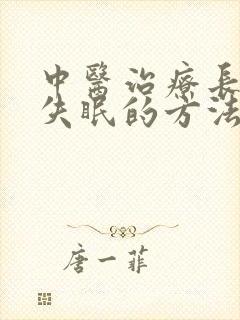 中醫治療長
失眠的方法
唐一菲